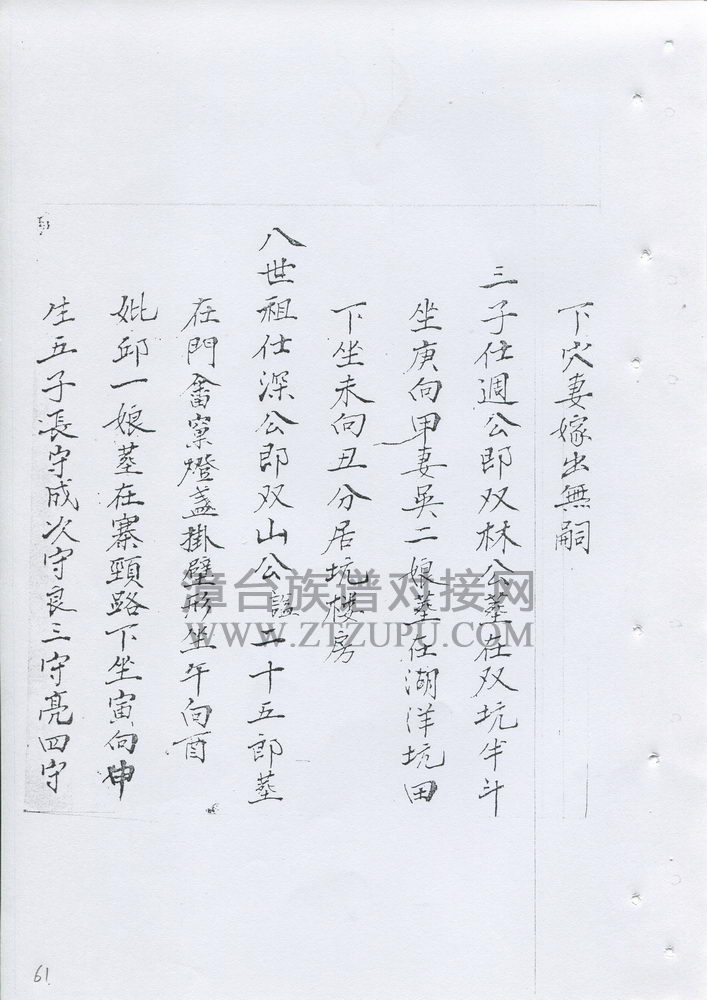 下穴妻嫁出無嗣
三子仕週公即双林公墓在双坑半斗
坐庚向甲妻吳二娘墓在湖洋坑田
下坐未向丑分居坑楼房
八世祖仕深公即双山公謚二十五郎墓
在門畬窠燈盏掛壁形坐午向酉
妣邱一娘墓在寨頸路下坐寅向申
生五子長守成次守良三守亮四守
漳台族谱对接网
WWW.ZTZUPU.COM
61